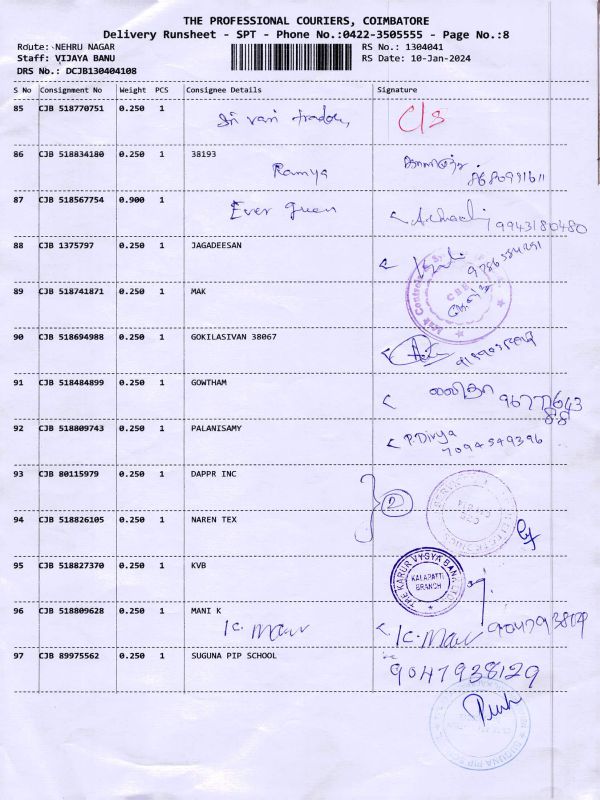 THE PROFESSIONAL COURIERS, COIMBATORE
Delivery Runsheet - SPT - Phone No.:0422-3505555 - Page No.:8
Route: NEHRU NAGAR RS No.: 1304041
Staff: VIJAYA BANU RS Date: 10-Jan-2024
DRS No.: DCJB130404108
S No Consignment No Weight PCS Consignee Details Signature
85 CJB 518770751 0.250 1 Sri vari traders, C/S
86 CJB 518834180 0.250 1 38193
Ramya 8680991611
87 CJB 518567754 0.900 1 Ever green 9943180480
88 CJB 1375797 0.250 1 JAGADEESAN
89 CJB 518741871 0.250 1 MAK
90 CJB 518694988 0.250 1 GOKILASIVAN 38067
91 CJB 518484899 0.250 1 GOWTHAM 96777643
88
92 CJB 518809743 0.250 1 PALANISAMY P.Divya
7094549396
93 CJB 80115979 0.250 1 DAPPR INC
2
94 CJB 518826105 0.250 1 NAREN TEX
95 CJB 518827370 0.250 1 KVB THE KARUR VYSYA BANK
KALAPATTI
BRANCH
96 CJB 518809628 0.250 1 MANI K
K. Mani K. Mani
97 CJB 89975562 0.250 1 SUGUNA PIP SCHOOL
9047938129
SUGUNA PIP